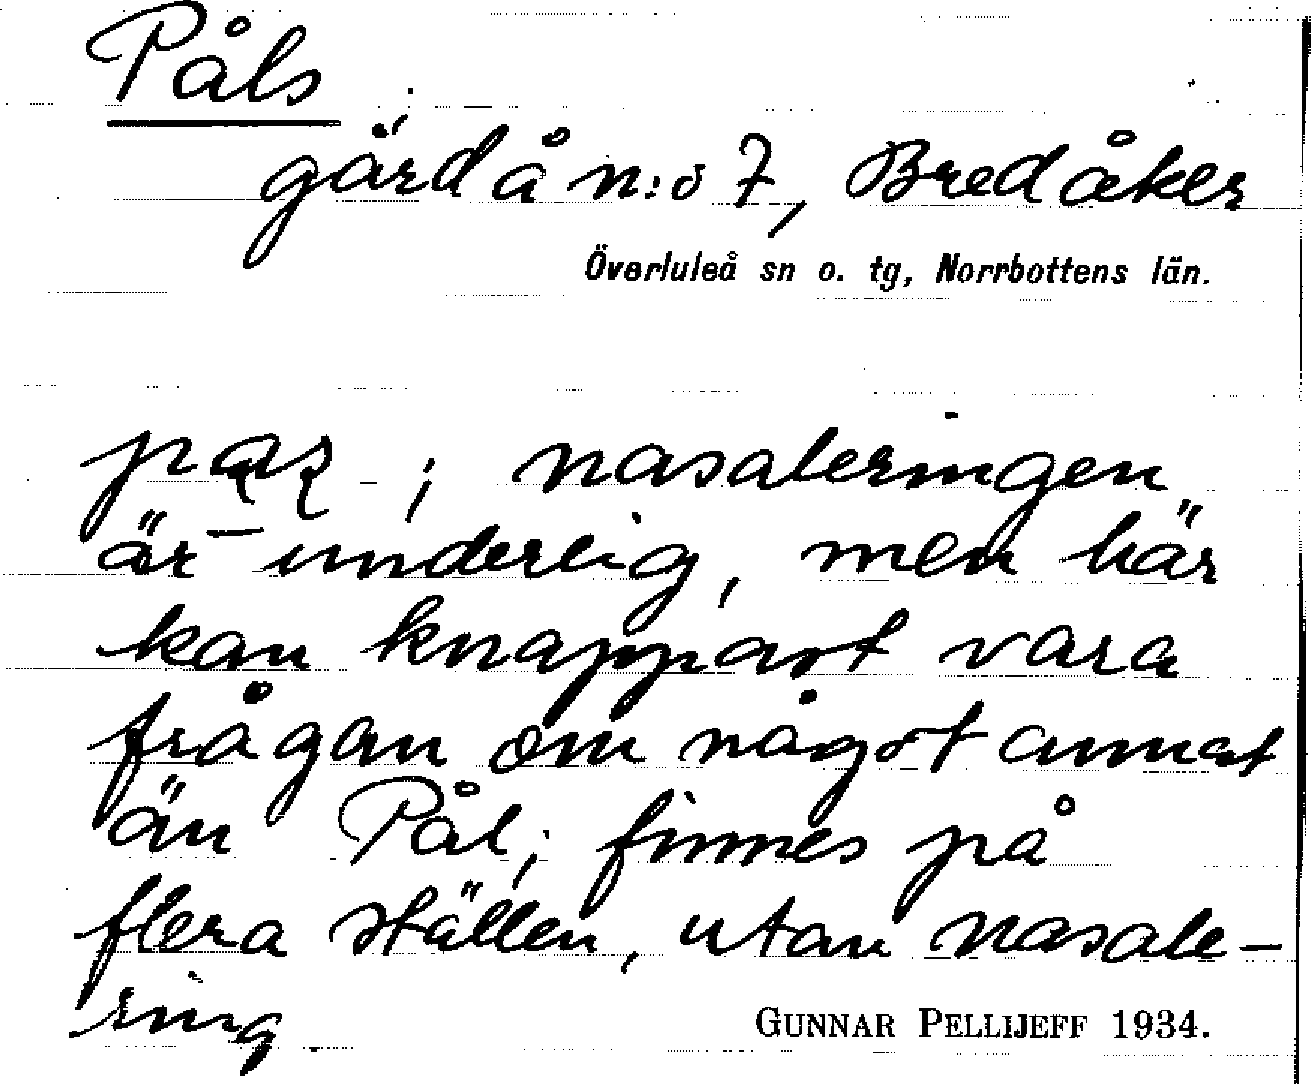 Påls
gård å n:o 7, Bredåker
Överluleå sn o. tg, Norrbottens län.
; nasaleringen
är underlig, men här
kan knappast vara
frågan om något annat
än Pål; finnes på
flera ställen, utan nasale-
ring
GUNNAR PELLIJEFF 1934.